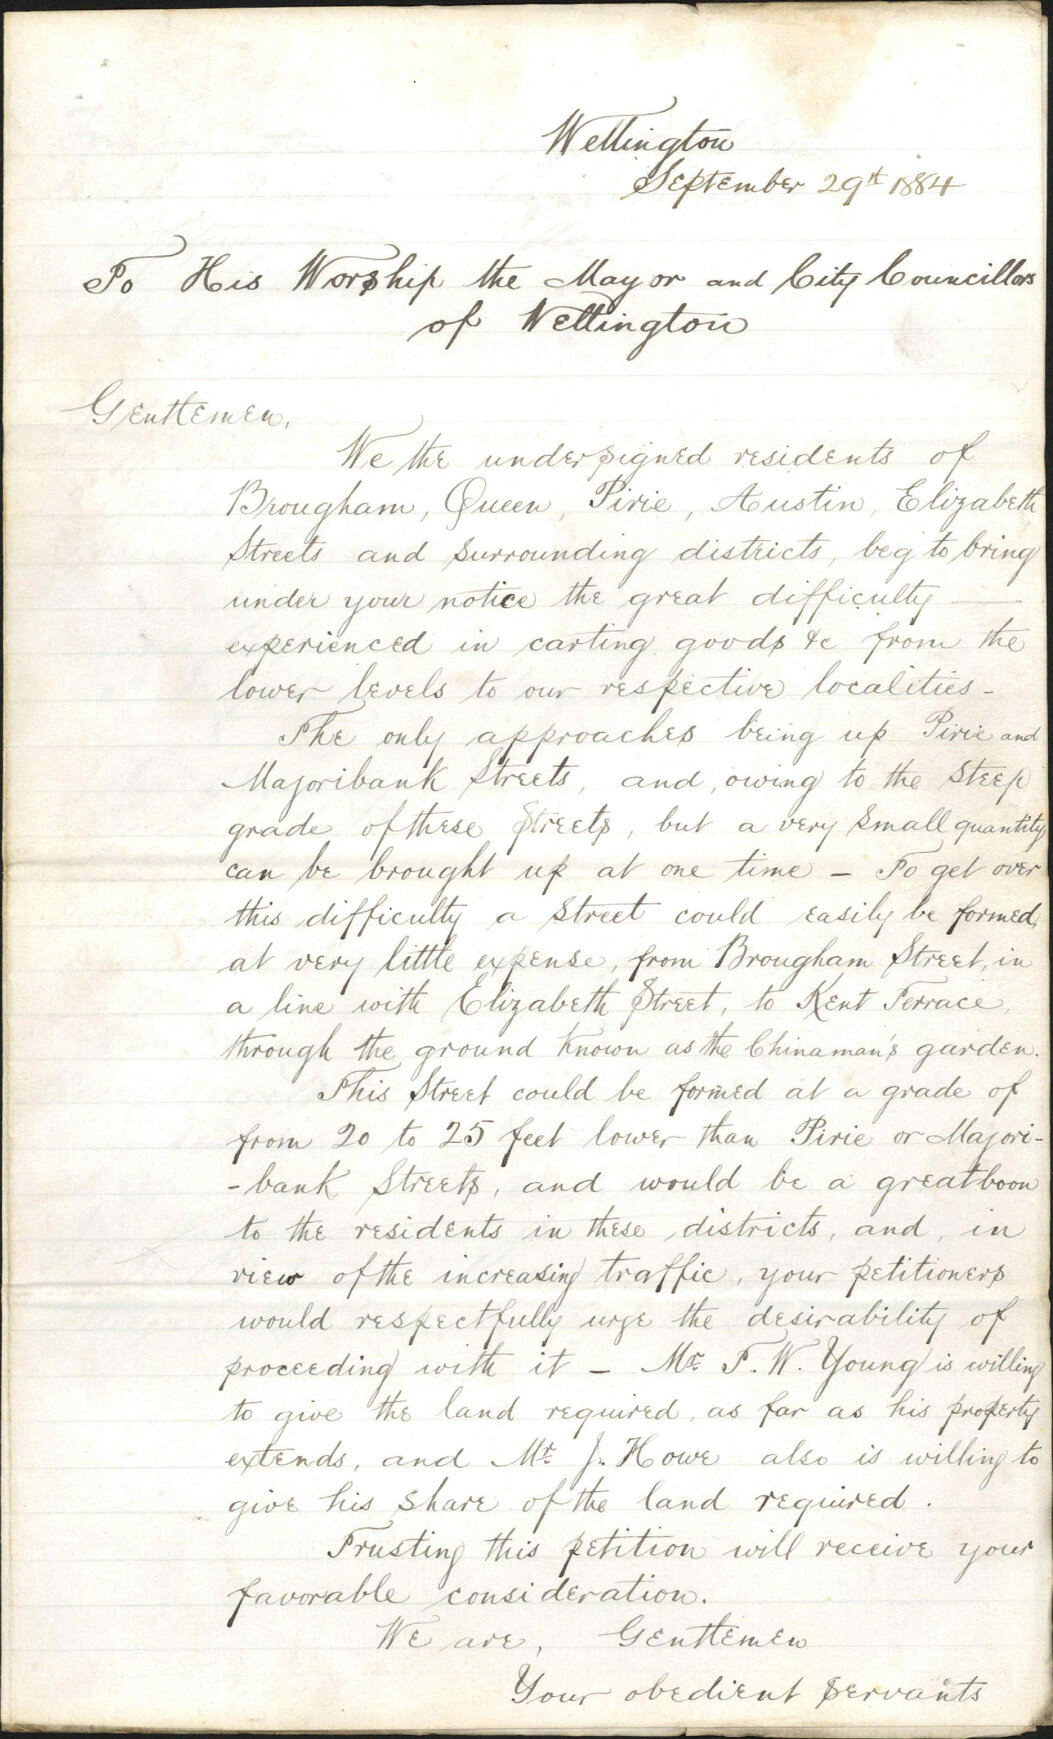 Wellington
September 29th 1884
To His Worship the Mayor and City Councillors
of Wellington
Gentlemen,
We the undersigned residents of
Brougham, Queen, Pirie, Austin, Elizabeth
Streets and surrounding districts, beg to bring
under your notice the great difficulty —
experienced in carting goods &c from the
lower levels to our respective localities -
The only approaches being up Pirie and
Majoribank Streets, and, owing to the steep
grade of these Streets, but a very small quantity
can be brought up at one time - To get over
this difficulty a street could easily be formed,
at very little expense, from Brougham Street, in
a line with Elizabeth Street, to Kent Terrace,
through the ground known as the Chinaman's garden.
This Street could be formed at a grade of
from 20 to 25 feet lower than Pirie or Majori-
-bank Streets, and would be a great boon
to the residents in these districts, and, in
view of the increasing traffic, your petitioners
would respectfully urge the desirability of
proceeding with it - Mr. F. W. Young is willing
to give the land required, as far as his property
extends, and Mr. J. Howe also is willing to
give his share of the land required.
Trusting this petition will receive your
favorable consideration.
We are, Gentlemen
Your obedient servants